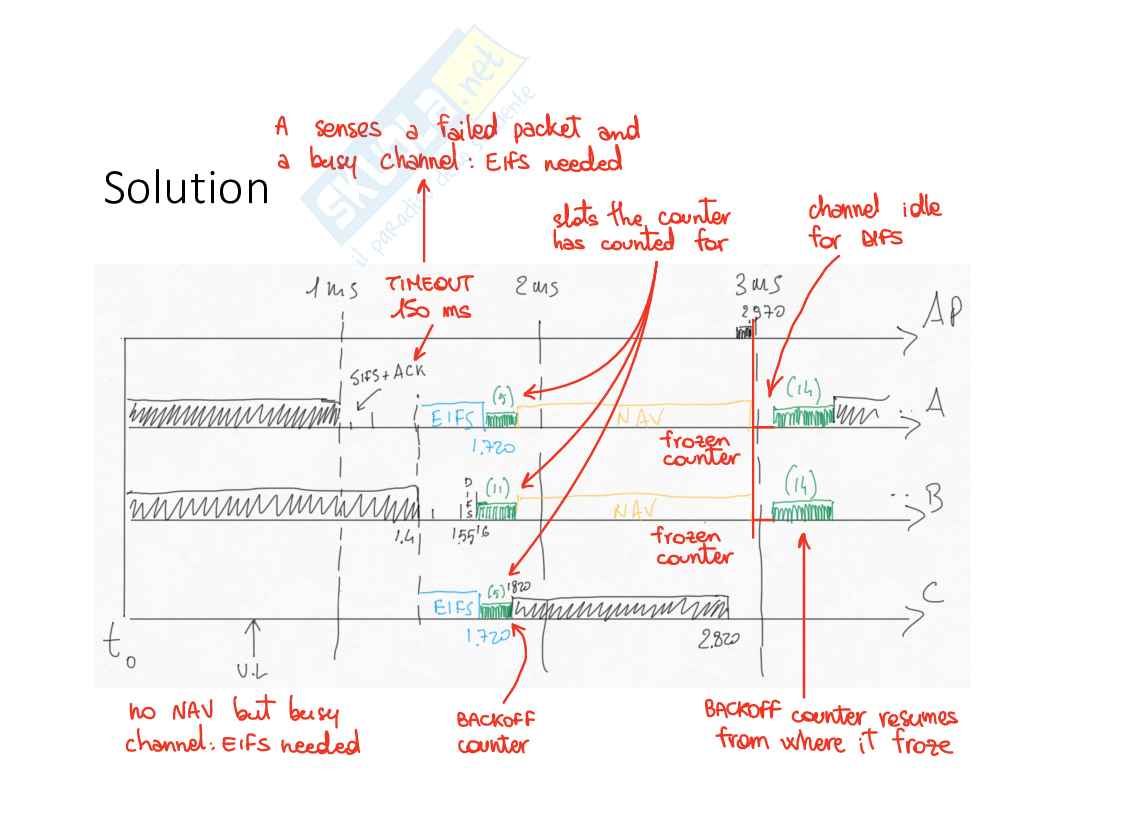 SKUOLA.net
il paradiso dello studente
A senses a failed packet and
a busy channel: EIFS needed
Solution
slots the counter
has counted for
channel idle
for DIFS
1 ms
TIMEOUT
150 ms
2 ms
3 ms
2.970
AP
SIFS + ACK
(5)
(14)
EIFS
NAV
A
1.720
frozen
counter
DIFS
(11)
(14)
NAV
B
1.4
1.55
1.6
frozen
counter
(5)
1820
EIFS
C
t₀
1.720
2.820
U.L
no NAV but busy
channel: EIFS needed
BACKOFF
counter
BACKOFF counter resumes
from where it froze